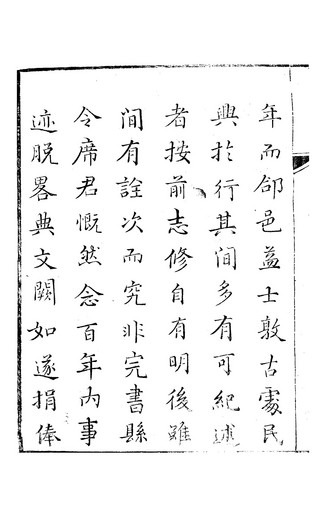 年而郃邑益士敦古處民
興於行其間多有可紀述
者按前志修自有明後雖
間有詮次而究非完書縣
令席君慨然念百年內事
迹脫畧典文闕如遂捐俸